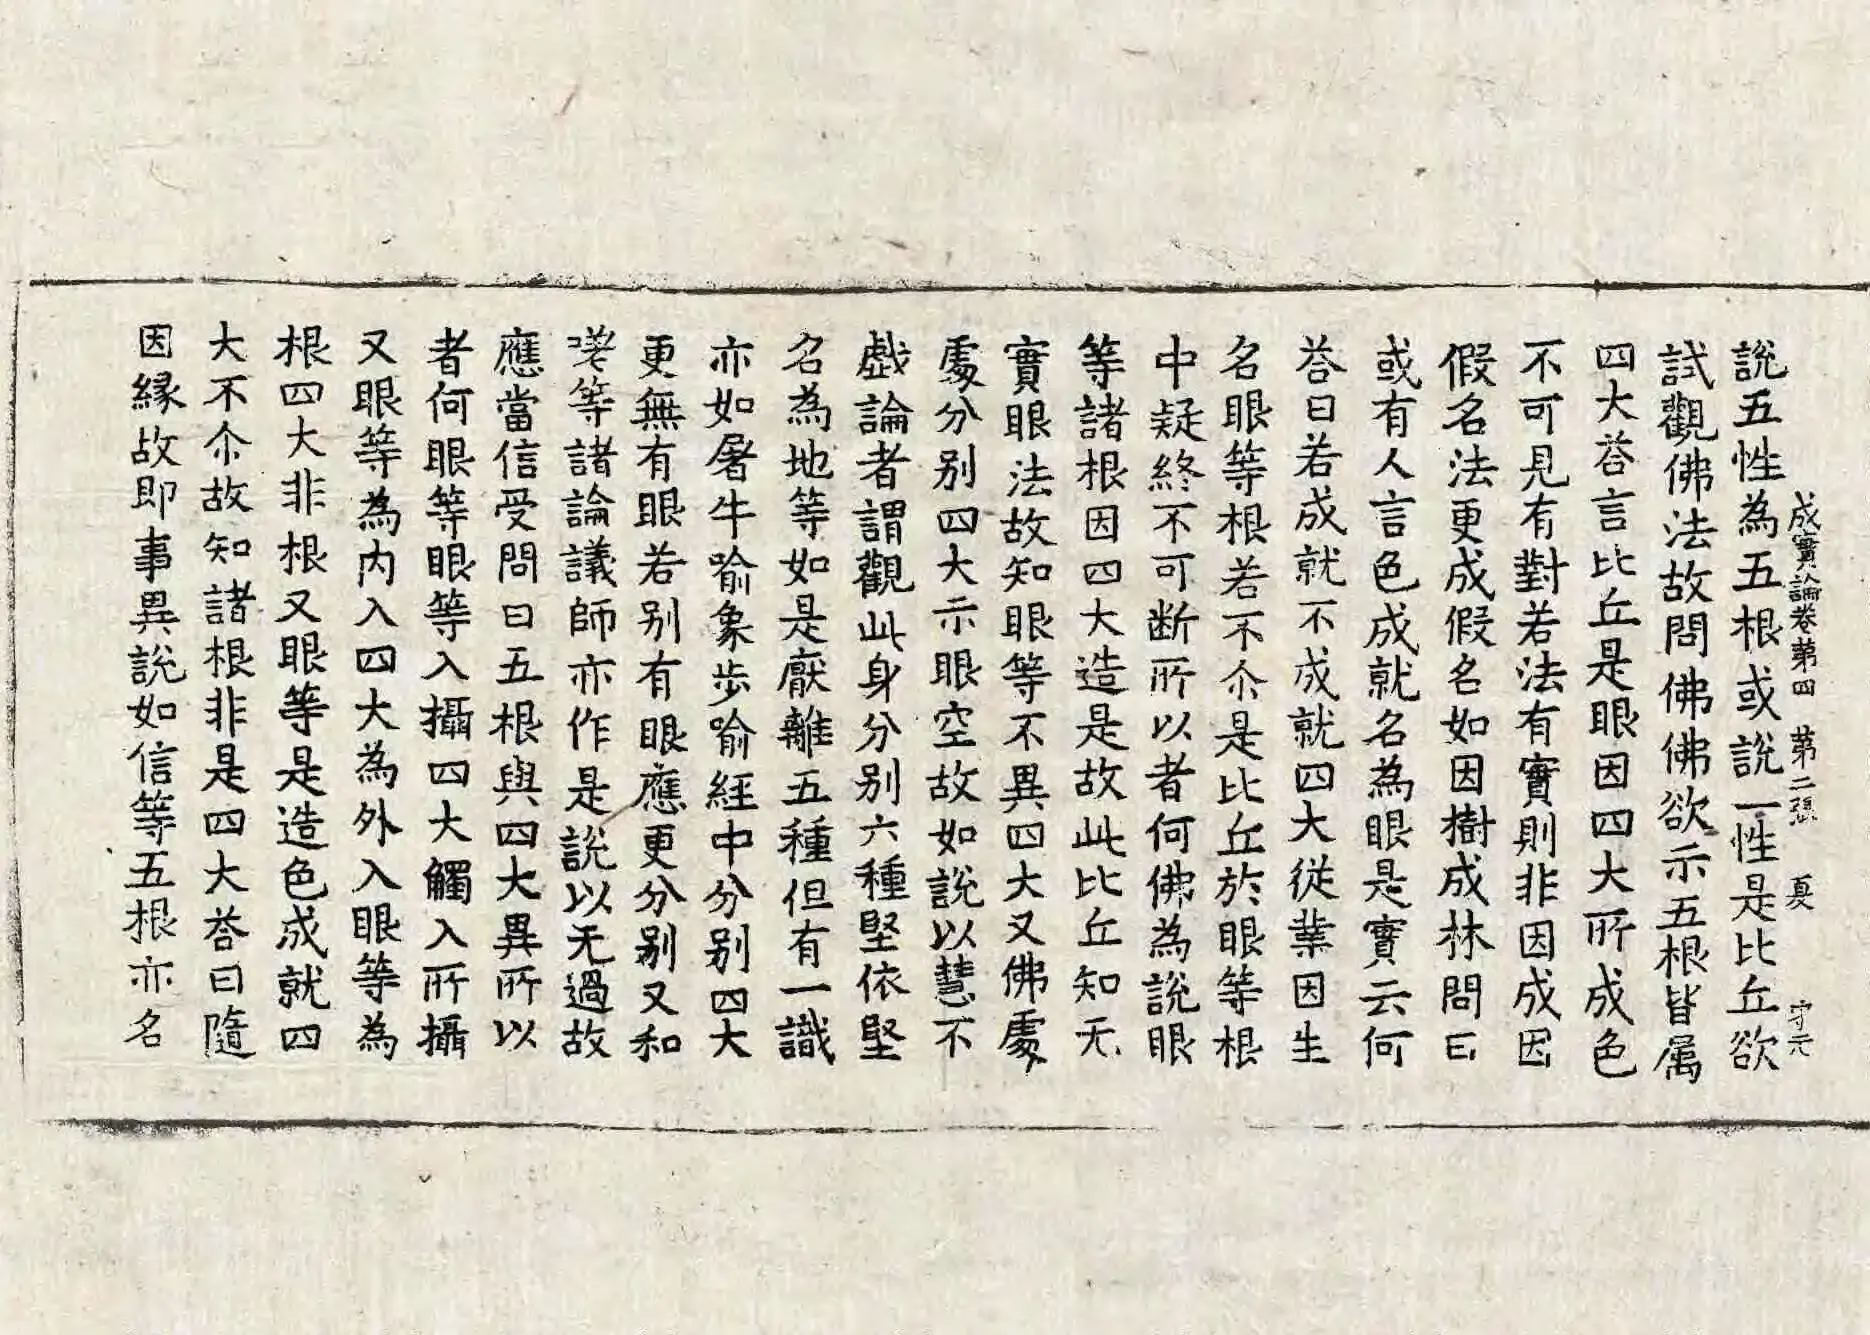 成實論卷第四 第二張 守元
說五性為五根或說一性是比丘欲
試觀佛法故問佛佛欲示五根皆属
四大荅言比丘是眼因四大所成色
不可見有對若法有實則非因成因
假名法更成假名如因樹成林問曰
或有人言色成就名為眼是實云何
荅曰若成就不成就四大從業因生
名眼等根若不尒是比丘於眼等根
中疑終不可断所以者何佛為說眼
等諸根因四大造是故此比丘知无
實眼法故知眼等不異四大又佛處
處分別四大示眼空故如說以慧不
戯論者謂觀此身分別六種堅依堅
名為地等如是厭離五種但有一識
亦如屠牛喻象步喻経中分別四大
更無有眼若別有眼應更分别又和
等諸論議師亦作是說以无過故
應當信受問曰五根與四大異所以
者何眼等眼等入攝四大觸入所攝
又眼等為内入四大為外入眼等為
根四大非根又眼等是造色成就四
大不尒故知諸根非是四大荅曰隨
因縁故即事異說如信等五根亦名